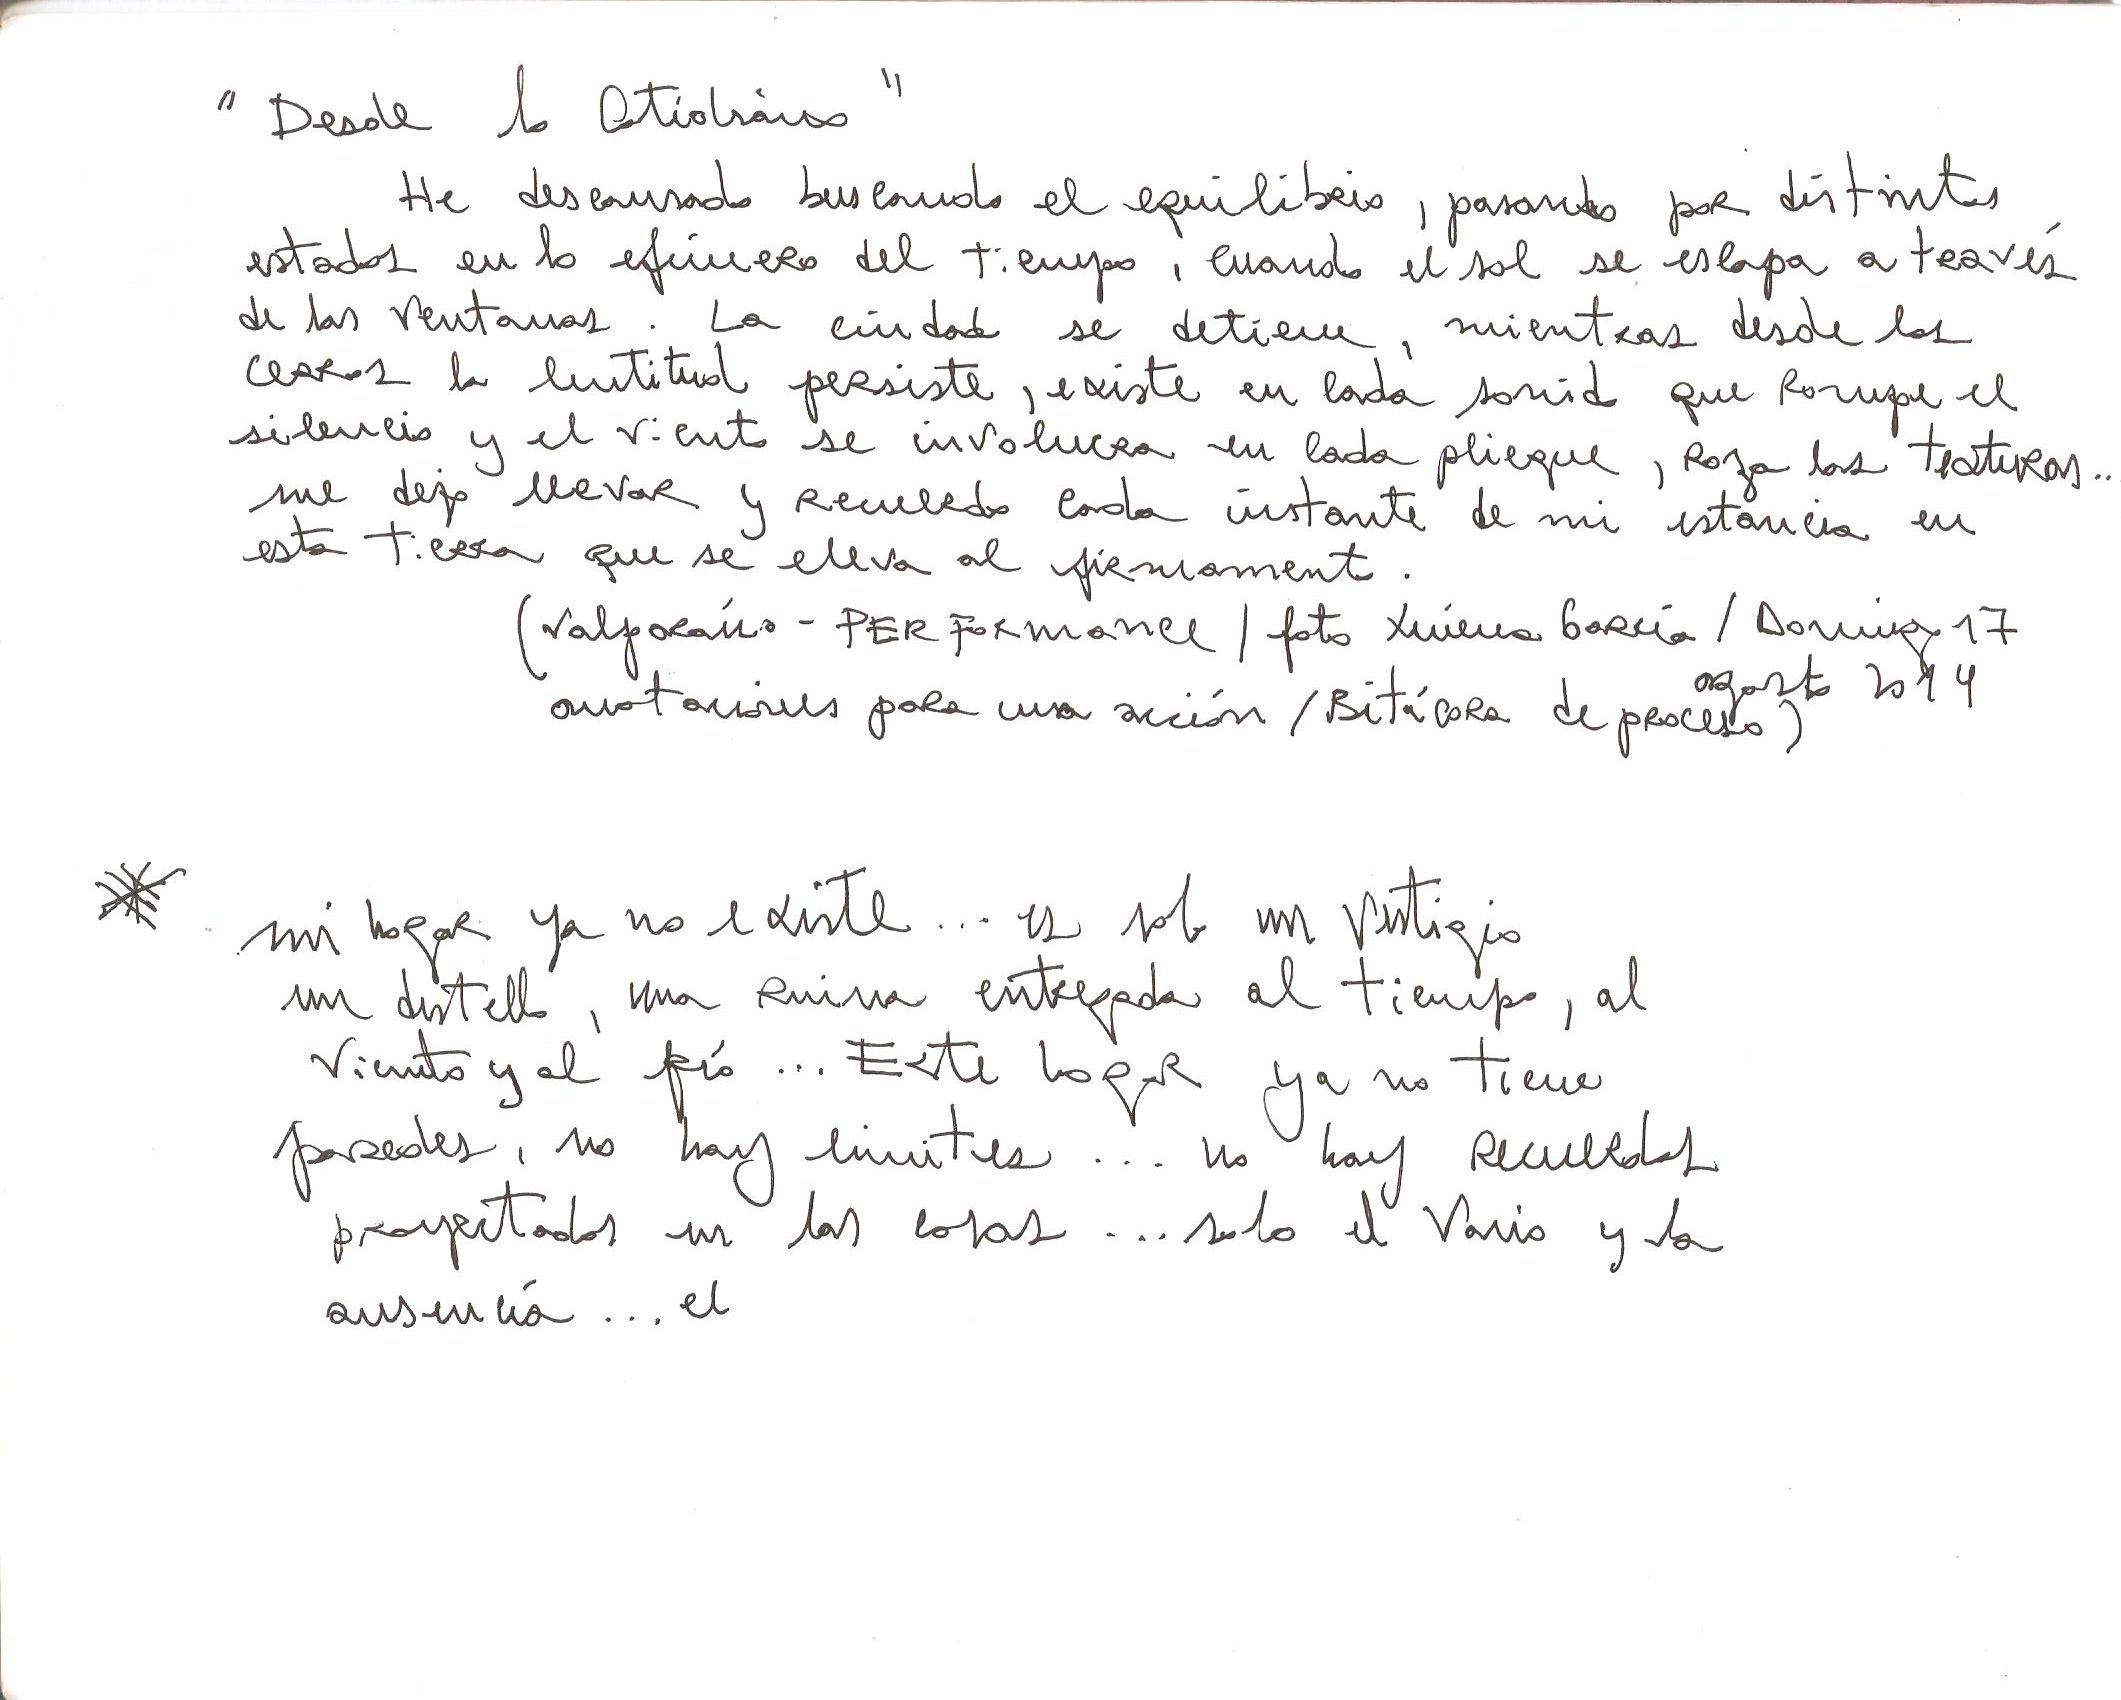 "Desde lo Cotidiano"
He descansado buscando el equilibrio, pasando por distintos
estados en lo efímero del tiempo, cuando el sol se escapa a través
de las ventanas. La ciudad se detiene, mientras desde los
cerros la lentitud persiste, existe en cada sonido que rompe el
silencio y el viento se involucra en cada pliegue, roza las texturas..
me dejo llevar y recuerdo cada instante de mi estancia en
esta tierra que se eleva al firmamento.
(Valparaíso - PERFORMANCE / foto Ximena García / Domingo 17
agosto 2014
anotaciones para una acción / Bitácora de proceso)
mi hogar ya no existe... es solo un vestigio
un destello, una ruina entregada al tiempo, al
viento y al frío ... Este hogar ya no tiene
paredes, no hay límites ... no hay recuerdos
proyectados en las cosas ... solo el vacío y la
ausencia ... el